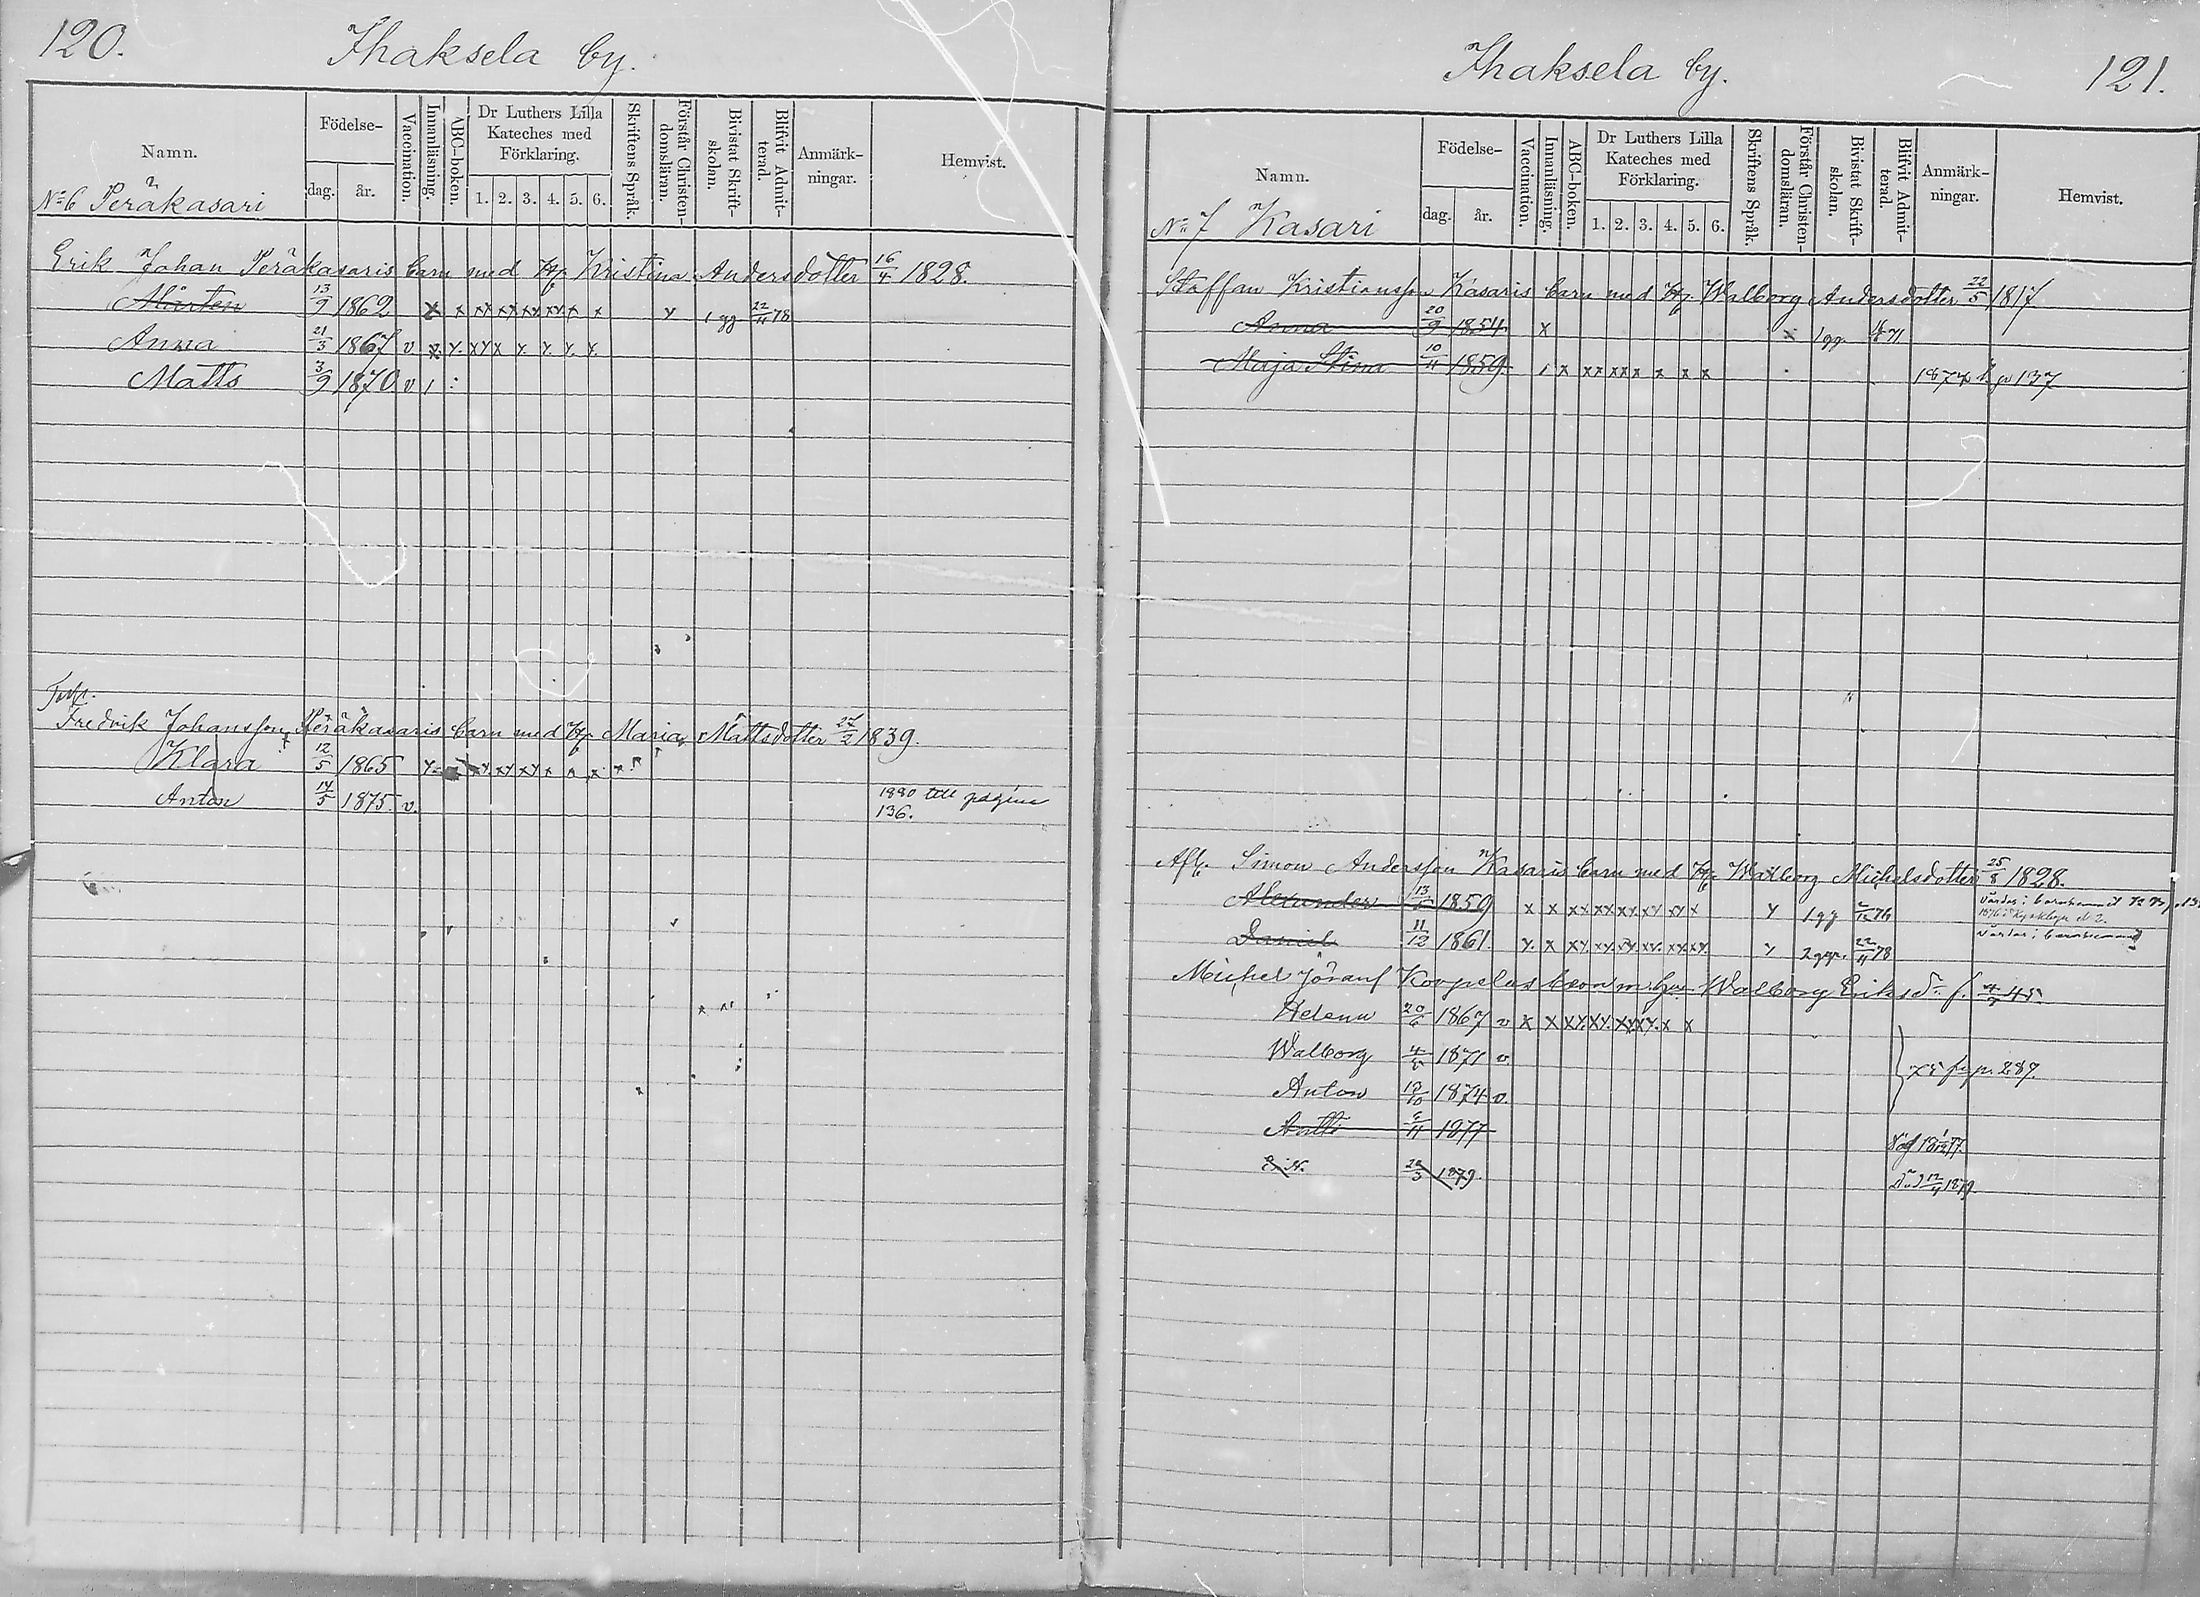 120.
Ihaksela by.
Namn.
Födelse-
dag.
år.
Vaccination.
Innanläsning.
ABC-boken.
Dr Luthers Lilla
Kateches med
Förklaring.
1. 2. 3. 4. 5. 6.
Skriftens Språk.
Förstår Christen-
domsläran.
Bivistat Skrift-
skolan.
Blifvit Admit-
terad.
Anmärk-
ningar.
Hemvist.
No 6 Peräkasari
Erik Johan Peräkasaris barn med Kristina Andersdotter 16/4 1828.
Mårten 13/9 1862 x x xx xx xx xx x x x 1 gg 22/11 78
Anna 21/3 1867 v x x. xx x x. x. x. x.
Matts 3/9 1870 v 1 :
Fredrik Johansson Peräkasaris barn med Maria Mattsdotter 27/2 1839.
Klara 12/5 1865
Anton 14/5 1875. v. 1880 till pagina
136.
Ihaksela by.
121.
Namn.
Födelse-
dag.
år.
Vaccination.
Innanläsning.
ABC-boken.
Dr Luthers Lilla
Kateches med
Förklaring.
1. 2. 3. 4. 5. 6.
Skriftens Språk.
Förstår Christen-
domsläran.
Bivistat Skrift-
skolan.
Blifvit Admit-
terad.
Anmärk-
ningar.
Hemvist.
No 7 Kasari
Staffan Kristiansson Kasaris barn med Walborg Andersdotter 22/5 1817
Anna 20/9 1854 x x 1 gg 71
Maja Stina 10/11 1859. x xx xx x x x x 137
Afl. Simon Andersson Kasaris barn med Walborg Michelsdotter 25/8 1828.
Alexander 13 1859 x x xx xx xx xx xx x x 1 gg 76
Daniel 11/12 1861. x. x xx. xx. xx xx. xx. xx. x 2 ggr. 22/11 78
Michel Koopelas barn m. Walborg Eriksd. f. 45.
Helena 20/6 1867 v x x xx. xx. xx. xx. x x
Walborg 1871 v. p. 287.
Anton 1874 v.
Matts 1877
1879. 1879.